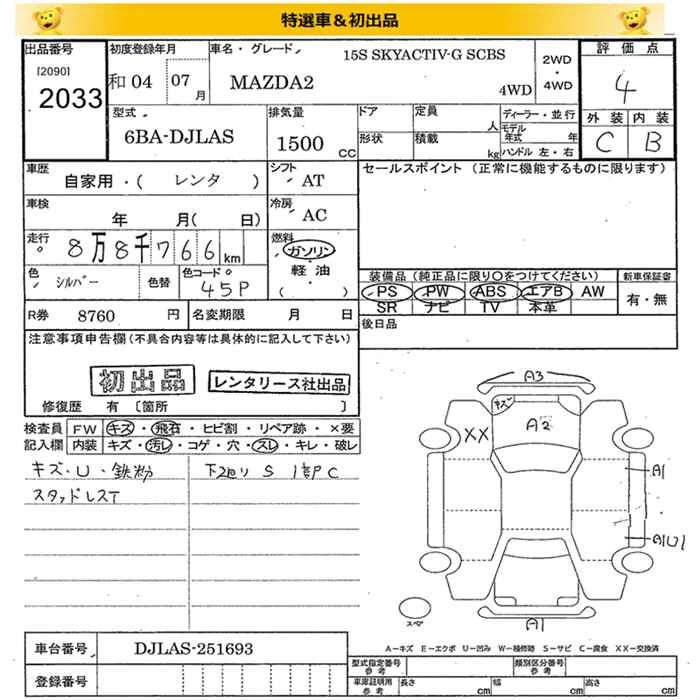 特選車＆初出品
出品番号
[2090]
2033
初度登録年月
和04 07月
車名・グレード
15S SKYACTIV-G SCBS
MAZDA2 4WD
2WD
・
4WD
評価点
4
外装 内装
C B
型式
6BA-DJLAS
排気量
1500 CC
ドア
形状
定員 人
積載 kg
ディーラー・並行
モデル年式 年
ハンドル 左・右
車歴
自家用・( レンタ )
シフト
AT
セールスポイント (正常に機能するものに限ります)
車検
年 月( 日)
冷房
AC
走行
8万8千766km
燃料
ガソリン
・
軽油
・
( )
色
シルバー
色替
色コード
45P
装備品(純正品に限り○をつけてください)
PS PW ABS エアB AW
SR ナビ TV 本革
新車保証書
有・無
R券 8760 円
名変期限 月 日
後日品
注意事項申告欄(不具合内容等は具体的に記入して下さい)
初出品
レンタリース社出品
修復歴 有 [箇所 ]
検査員 FW キズ・飛石・ヒビ割・リペア跡・×要
記入欄 内装 キズ・汚レ・コゲ・穴・スレ・キレ・破レ
キズ・U・鉄粉
下廻り S 1部P C
スタッドレスT
A3
キズ
A2
XX
A1
A1U1
A1
スペア
A－キズ E－エクボ U－凹み W－補修跡 S－サビ C－腐食 XX－交換済
車台番号 DJLAS-251693
登録番号
型式指定番号
参考
類別区分番号
参考
車庫証明用
参考
長さ cm
幅 cm
高さ cm